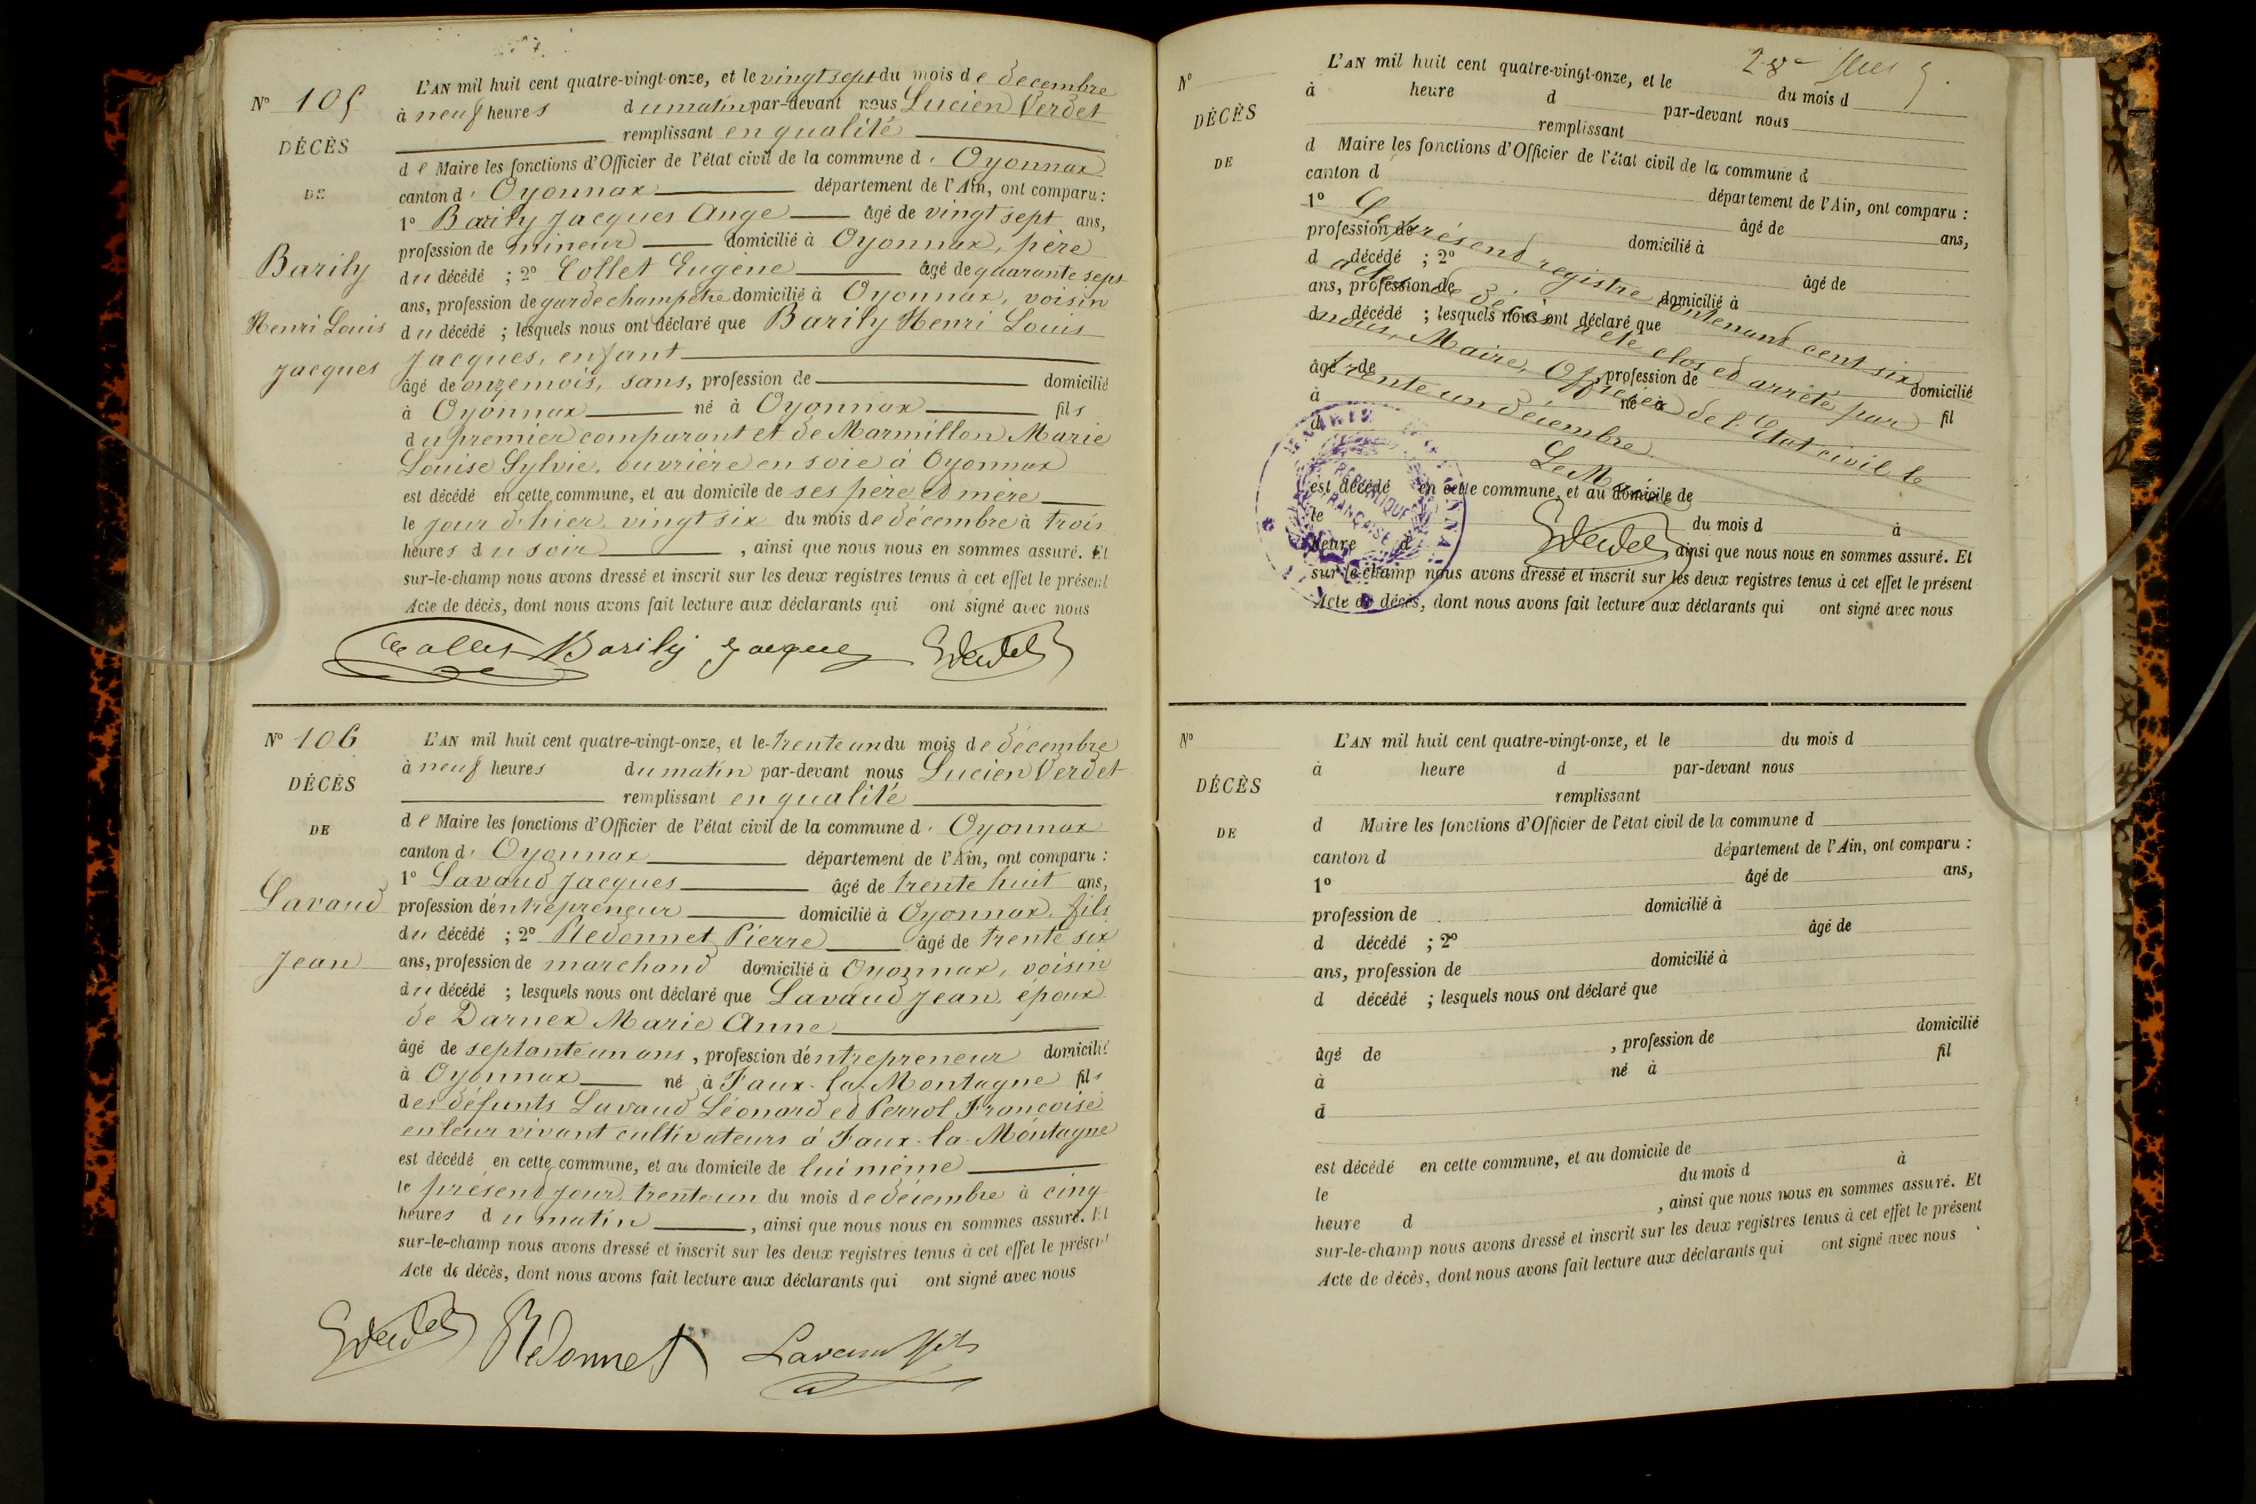 N° 105
DÉCÈS
DE
Barily
Henri Louis
Jacques
L'AN mil huit cent quatre-vingt-onze, et le vingt sept du mois de décembre
à neuf heures du matin par-devant nous Lucien Verdet
remplissant en qualité
de Maire les fonctions d'Officier de l'état civil de la commune d' Oyonnax
canton d' Oyonnax département de l'Ain, ont comparu :
1° Barily Jacques Ange âgé de vingt sept ans,
profession de mineur domicilié à Oyonnax, père
du décédé ; 2° Collet Eugène âgé de quarante sept
ans, profession de garde champêtre domicilié à Oyonnax, voisin
du décédé ; lesquels nous ont déclaré que Barily Henri Louis
Jacques, enfant
âgé de onze mois, sans, profession de domicilié
à Oyonnax né à Oyonnax fils
du premier comparant et de Marmillon Marie
Louise Sylvie, ouvrière en soie à Oyonnax
est décédé en cette commune, et au domicile de ses père et mère
le jour d'hier vingt six du mois de décembre à trois
heures du soir , ainsi que nous nous en sommes assuré. Et
sur-le-champ nous avons dressé et inscrit sur les deux registres tenus à cet effet le présent
Acte de décès, dont nous avons fait lecture aux déclarants qui ont signé avec nous
Collet Barily Jacques Verdet
N° 106
DÉCÈS
DE
Lavaud
Jean
L'AN mil huit cent quatre-vingt-onze, et le trente un du mois de décembre
à neuf heures du matin par-devant nous Lucien Verdet
remplissant en qualité
de Maire les fonctions d'Officier de l'état civil de la commune d' Oyonnax
canton d' Oyonnax département de l'Ain, ont comparu :
1° Lavaud Jacques âgé de trente huit ans,
profession d'entrepreneur domicilié à Oyonnax, fils
du décédé ; 2° Redonnet Pierre âgé de trente six
ans, profession de marchand domicilié à Oyonnax, voisin
du décédé ; lesquels nous ont déclaré que Lavaud Jean, époux
de Darnex Marie Anne
âgé de septante un ans, profession d'entrepreneur domicilié
à Oyonnax né à Faux-la-Montagne fils
des défunts Lavaud Léonard et Perrol Françoise
en leur vivant cultivateurs à Faux-la-Montagne
est décédé en cette commune, et au domicile de lui même
le présend jour trente un du mois de décembre à cinq
heures du matin , ainsi que nous nous en sommes assuré. Et
sur-le-champ nous avons dressé et inscrit sur les deux registres tenus à cet effet le présent
Acte de décès, dont nous avons fait lecture aux déclarants qui ont signé avec nous
Verdet Redonnet Lavaud fils
N°
DÉCÈS
DE
L'AN mil huit cent quatre-vingt-onze, et le du mois d
à heure d par-devant nous
remplissant
d Maire les fonctions d'Officier de l'état civil de la commune d
canton d département de l'Ain, ont comparu :
1° âgé de ans,
profession de domicilié à
d décédé ; 2° âgé de
ans, profession de domicilié à
d décédé ; lesquels nous ont déclaré que
âgé de , profession de domicilié
à né à fil
d
est décédé en cette commune, et au domicile de
le du mois d à
heure d ainsi que nous nous en sommes assuré. Et
sur-le-champ nous avons dressé et inscrit sur les deux registres tenus à cet effet le présent
Acte de décès, dont nous avons fait lecture aux déclarants qui ont signé avec nous
Le présend registre contenand cent six
actes de décès a été clos et arrêté par
nous, Maire, Officier de l'État civil le
trente un décembre
Le Maire
Verdet
RÉPUBLIQUE FRANÇAISE
N°
DÉCÈS
DE
L'AN mil huit cent quatre-vingt-onze, et le du mois d
à heure d par-devant nous
remplissant
d Maire les fonctions d'Officier de l'état civil de la commune d
canton d département de l'Ain, ont comparu :
1° âgé de ans,
profession de domicilié à
d décédé ; 2° âgé de
ans, profession de domicilié à
d décédé ; lesquels nous ont déclaré que
âgé de , profession de domicilié
à né à fil
d
est décédé en cette commune, et au domicile de
le du mois d à
heure d , ainsi que nous nous en sommes assuré. Et
sur-le-champ nous avons dressé et inscrit sur les deux registres tenus à cet effet le présent
Acte de décès, dont nous avons fait lecture aux déclarants qui ont signé avec nous